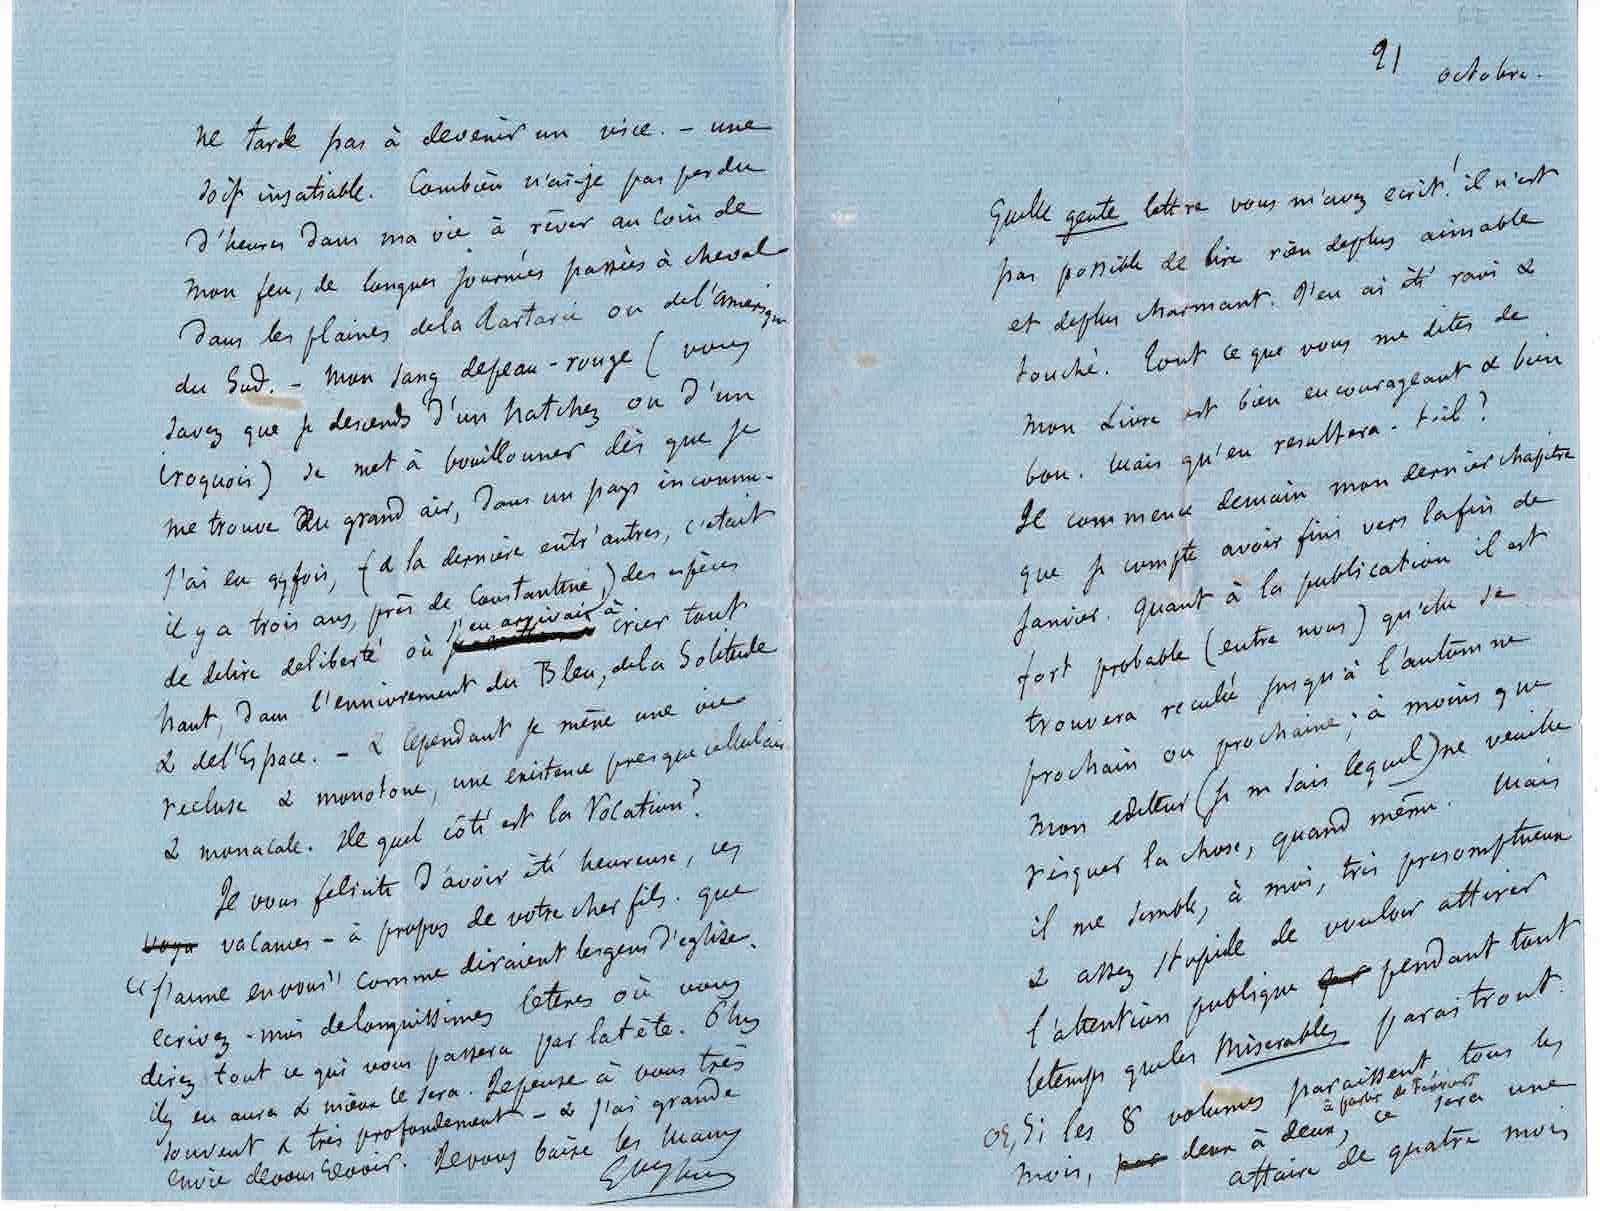 21 octobre.
Quelle gente lettre vous m'avez ecrit! il n'est
pas possible de lire rien deplus aimable
et deplus charmant. J'en ai été ravi &
touché. Tout ce que vous me dites de
mon Livre est bien encourageant & bien
bon. Mais qu'en resultera-t-il?
Je commence demain mon dernier chapitre
que je compte avoir fini vers lafin de
Janvier. Quant à la publication il est
fort probable (entre nous) qu'elle se
trouvera reculée jusqu'à l'automne
prochain ou prochaine; à moins que
mon editeur (je ne sais lequel) ne veuille
risquer la chose, quand même. Mais
il me semble, à moi, très presomptueux
& assez stupide de vouloir attirer
l'attention publique pendant tout
letemps queles Miserables paraitront.
Or, Si les 8 volumes paraissent tous les
à partir de
mois, deux à deux, ce sera une
affaire de quatre mois
ne tarde pas à devenir un vice. – une
soif insatiable. Combien n'ai-je pas perdu
d'heures dans ma vie à rêver au coin de
mon feu, de longues journées passées à cheval
dans les plaines dela Tartarie ou del'Amerique
du Sud. – Mon sang depeau-rouge (vous
savez que je descends d'un Natchez ou d'un
Iroquois) se met à bouillonner dès que je
me trouve au grand air, dans un pays inconnu. –
J'ai eu qqfois, (& la dernière entr'autres, c'etait
il y a trois ans, près de Constantine) des espèces
de delire deliberté où j'en arrivais à crier tout
haut, dans l'enivrement du Bleu, dela Solitude
& del'Espace. – & cependant je mène une vie
recluse & monotone, une existence presque cellulaire
& monacale. De quel côté est la Vocation?
Je vous felicite d'avoir été heureuse, ces
vacances – à propos de votre cher fils. que
"j'aime en vous" comme diraient lesgens d'eglise.
ecrivez-moi delonguissimes lettres où vous
direz tout ce qui vous passera par latête. Plus
il y en aura & mieux ce sera. Jepense à vous très
souvent & très profondement – & j'ai grande
envie devous revoir. Jevous baise les mains